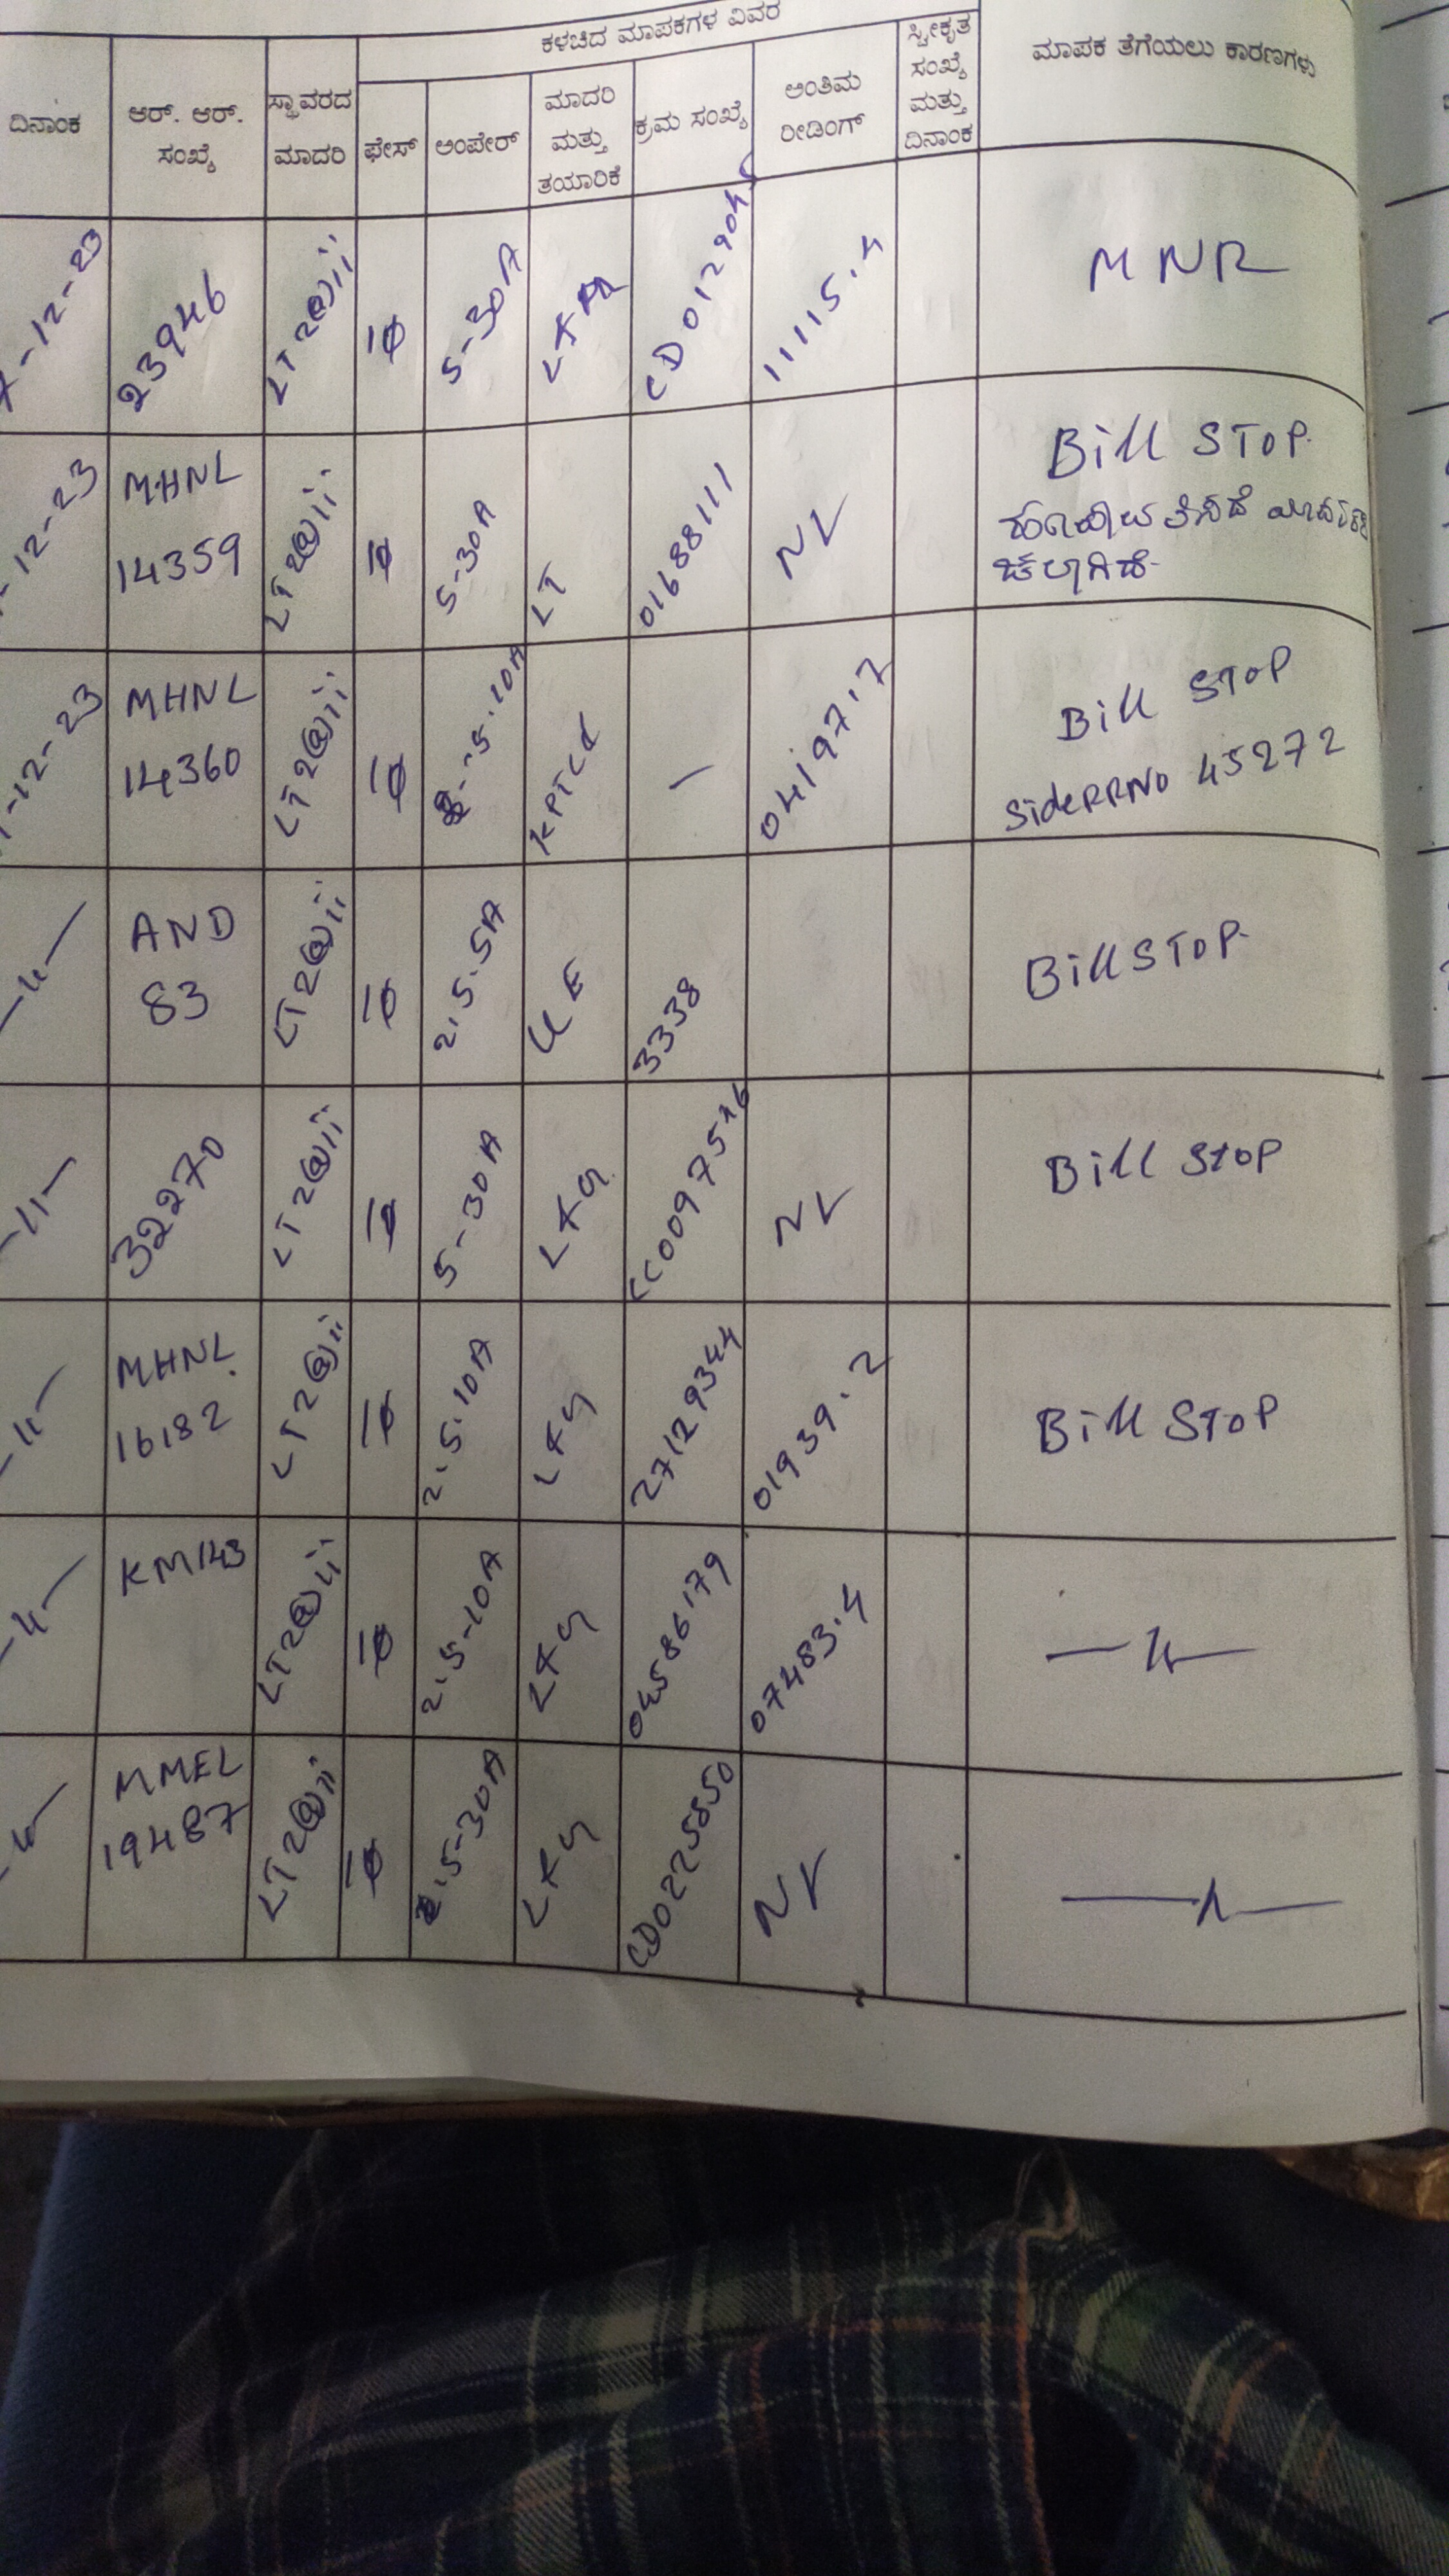 ಕಳಚಿದ ಮಾಪಕಗಳ ವಿವರ
ದಿನಾಂಕ
ಆರ್. ಆರ್. ಸಂಖ್ಯೆ
ಸ್ಥಾವರದ ಮಾದರಿ
ಫೇಸ್
ಅಂಪೇರ್
ಮಾದರಿ ಮತ್ತು ತಯಾರಿಕೆ
ಕ್ರಮ ಸಂಖ್ಯೆ
ಅಂತಿಮ ರೀಡಿಂಗ್
ಸ್ವೀಕೃತ ಸಂಖ್ಯೆ ಮತ್ತು ದಿನಾಂಕ
ಮಾಪಕ ತೆಗೆಯಲು ಕಾರಣಗಳು
-12-23 23946 LT2@ii 1ϕ 5-30A CD0129045 11115.4 MNR
-12-23 MHNL 14359 LT2@ii 1ϕ 5-30A LT 01688111 NV Bill STOP.
-12-23 MHNL 14360 LT2@ii 1ϕ 5-10A KPTCL — 04197.7 Bill STOP
SideRRNO 45272
-〃- AND 83 LT2@ii 1ϕ 2.5-5A UE 3338 Bill STOP
-〃- 32270 LT2@ii 1ϕ 5-30A L+G CC0097516 NV Bill STOP
-〃- MHNL 16182 LT2@ii 1ϕ 2.5-10A L+G 27129344 01939.2 Bill STOP
-〃- KM143 LT2@ii 1ϕ 2.5-10A L+G 04586179 07483.4 -〃-
-〃- MMEL 19487 LT2@ii 1ϕ 5-30A L+G CD0225850 NV -〃-